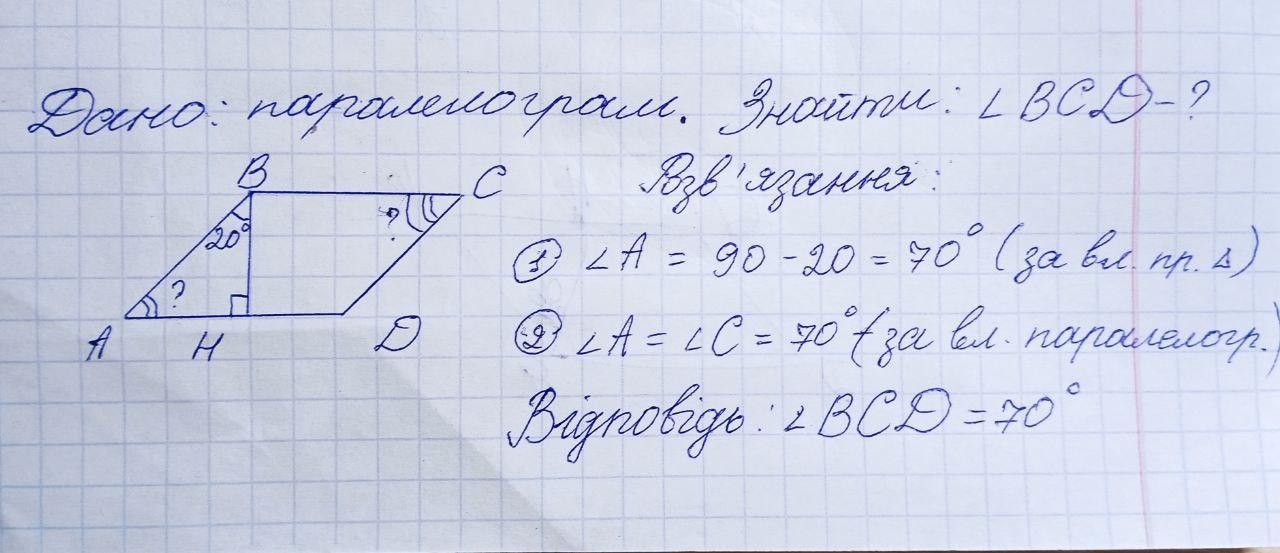 Дано: паралелограм. Знайти: ∠BCD-?
Взв'язання:
B
C
20°
?
?
A
H
D
① ∠A = 90 - 20 = 70° (за вл. пр. Δ)
② ∠A = ∠C = 70° (за вл. паралелогр.)
Відповідь: ∠BCD = 70°